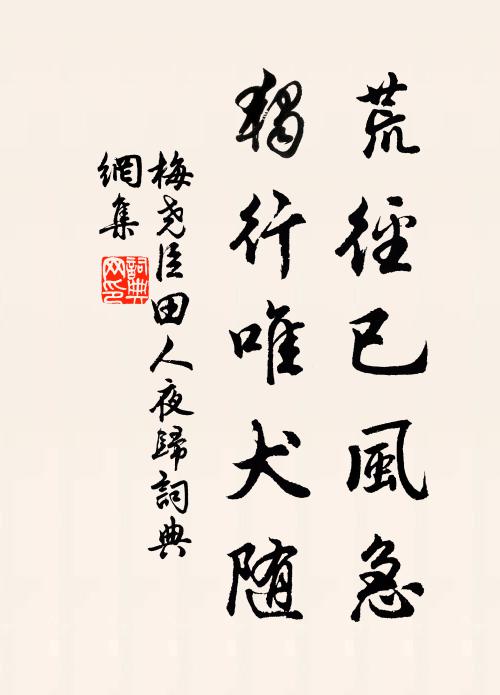 荒徑已風急
獨行唯犬随
梅堯臣田人夜歸詞典
網集
詞典網印